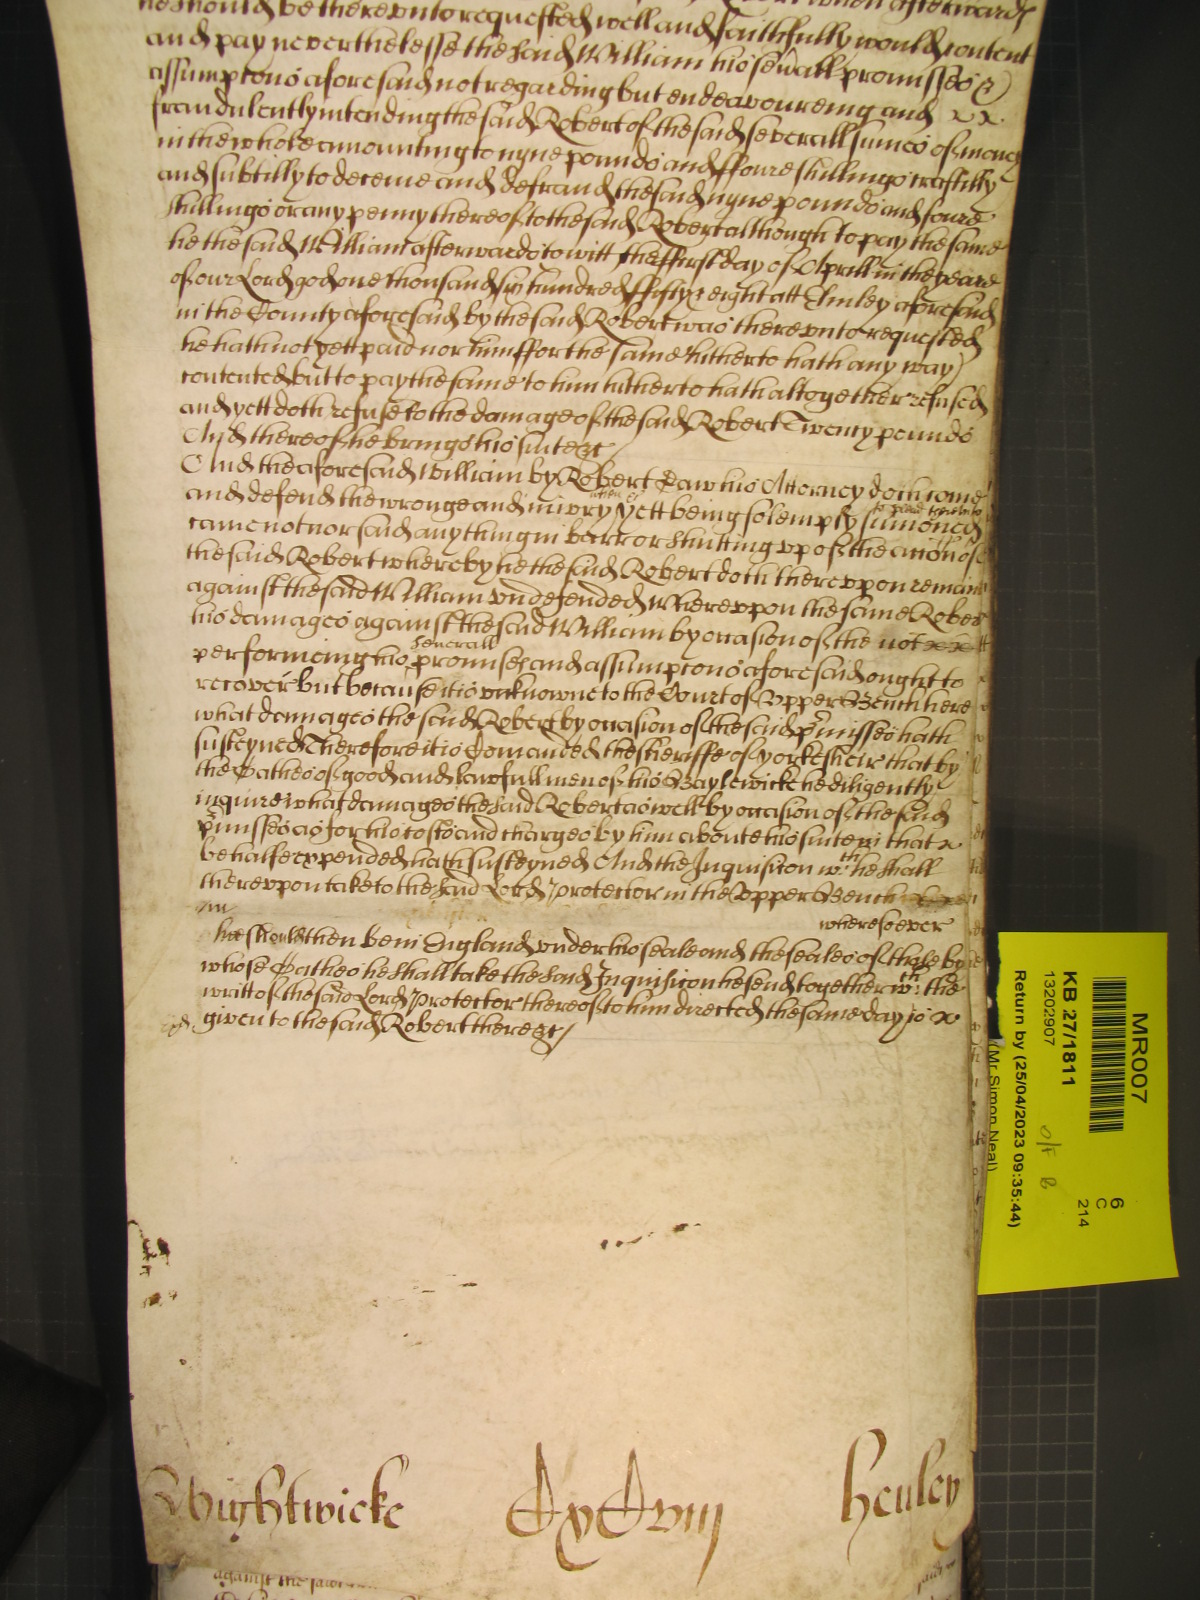 he should be thereunto requested well and faithfully would content
and pay neverthelesse the said William his sev'all promisses &
assumptons aforesaid not regarding but endeavoureing and x x
fraudulently intending the said Robert of the said severall sumes of money
in the whole amounting to nyne pounds and ffoure shillings craftilly
and subtilly to deceive and defraud the said nyne pounds and foure
shillings or any penny thereof to the said Robert although to pay the same
he the said William afterwards to witt the ffirst day of Aprill in the yeare
of our Lord god one thousand six hundred ffifty & eight att Emley aforesaid
in the County aforesaid by the said Robert was thereunto requested
he hath not yett paid nor him ffor the same hitherto hath any way
contented but to pay the same to him hitherto hath altogether refused
and yett doth refuse to the damage of the said Robert Twenty pounds
And thereof he brings his suite &c
And the aforesaid William by Robert Daw his Attorney doth come
and defend the wronge and iniury &c yett being solemply sumoned
came not nor said anything in barr or shutting up of the action of
the said Robert whereby he the said Robert doth thereupon remaine
against the said William undefended Whereupon the same Robert
his damages against the said William by occasion of the not x x
severall
performeing his promises and assumptons aforesaid ought to
recover but because it is unknowne to the Court of Upper Bench here
what damages the said Robert by occasion of the said p'misses hath
susteyned Therefore it is Comanded the sheriffe of yorkesheir that by
the Oathes of good and lawfull men of his Baylewicke he diligently
inquire what damages the said Robert as well by occasion of the said
p'misses as for his costs and charges by him aboute his suite in that x
behalfe expended hath susteyned And the Inquisicon w:th he shall
thereupon take to the said Lord Protector in the Upper Bench
wheresoever
he should then be in England under his seale and the seales of those by
whose Oathes he shall take the said Inquisicon he send together w:th the
writt of the said Lord Protector thereof to him directed the same day is x
given to the said Robert there &c
Wightwicke
Henley
MR007
KB 27/1811
13202907
Return by (25/04/2023 09:35:44)
(Mr Simon Neal)
6
C
214